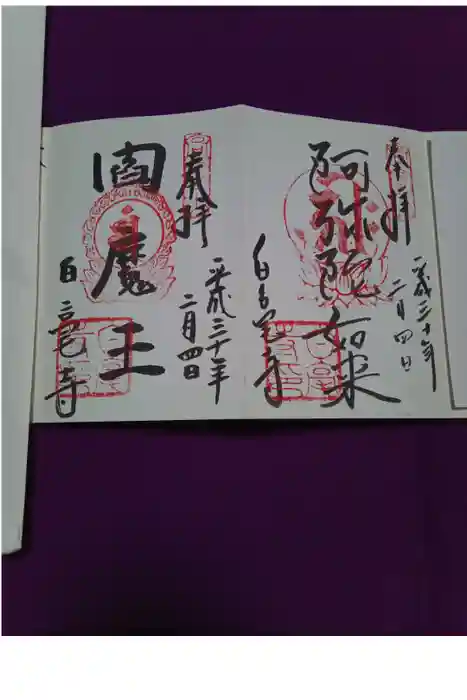 奉拝
平成三十年
二月四日
阿弥陀如来
白毫寺
奉拝
平成三十年
二月四日
閻魔王
白毫寺